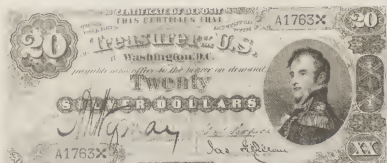 CERTIFICATE OF DEPOSIT
THIS CERTIFIES THAT
A1763X
20
20
Treasurer of the U.S.
Washington, D.C.
payable at his office to the bearer on demand.
Twenty
SILVER DOLLARS
A1763X
XX